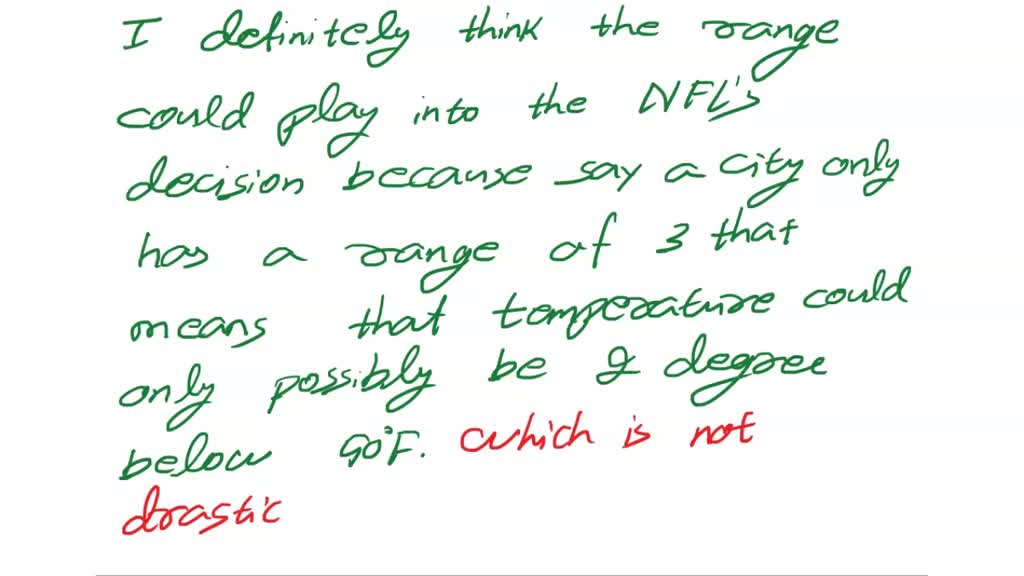 I definitely think the range
could play into the NFL's
decision because say a city only
has a range of 3 that
means that temperature could
only possibly be 2 degree
below 90°F. which is not
drastic